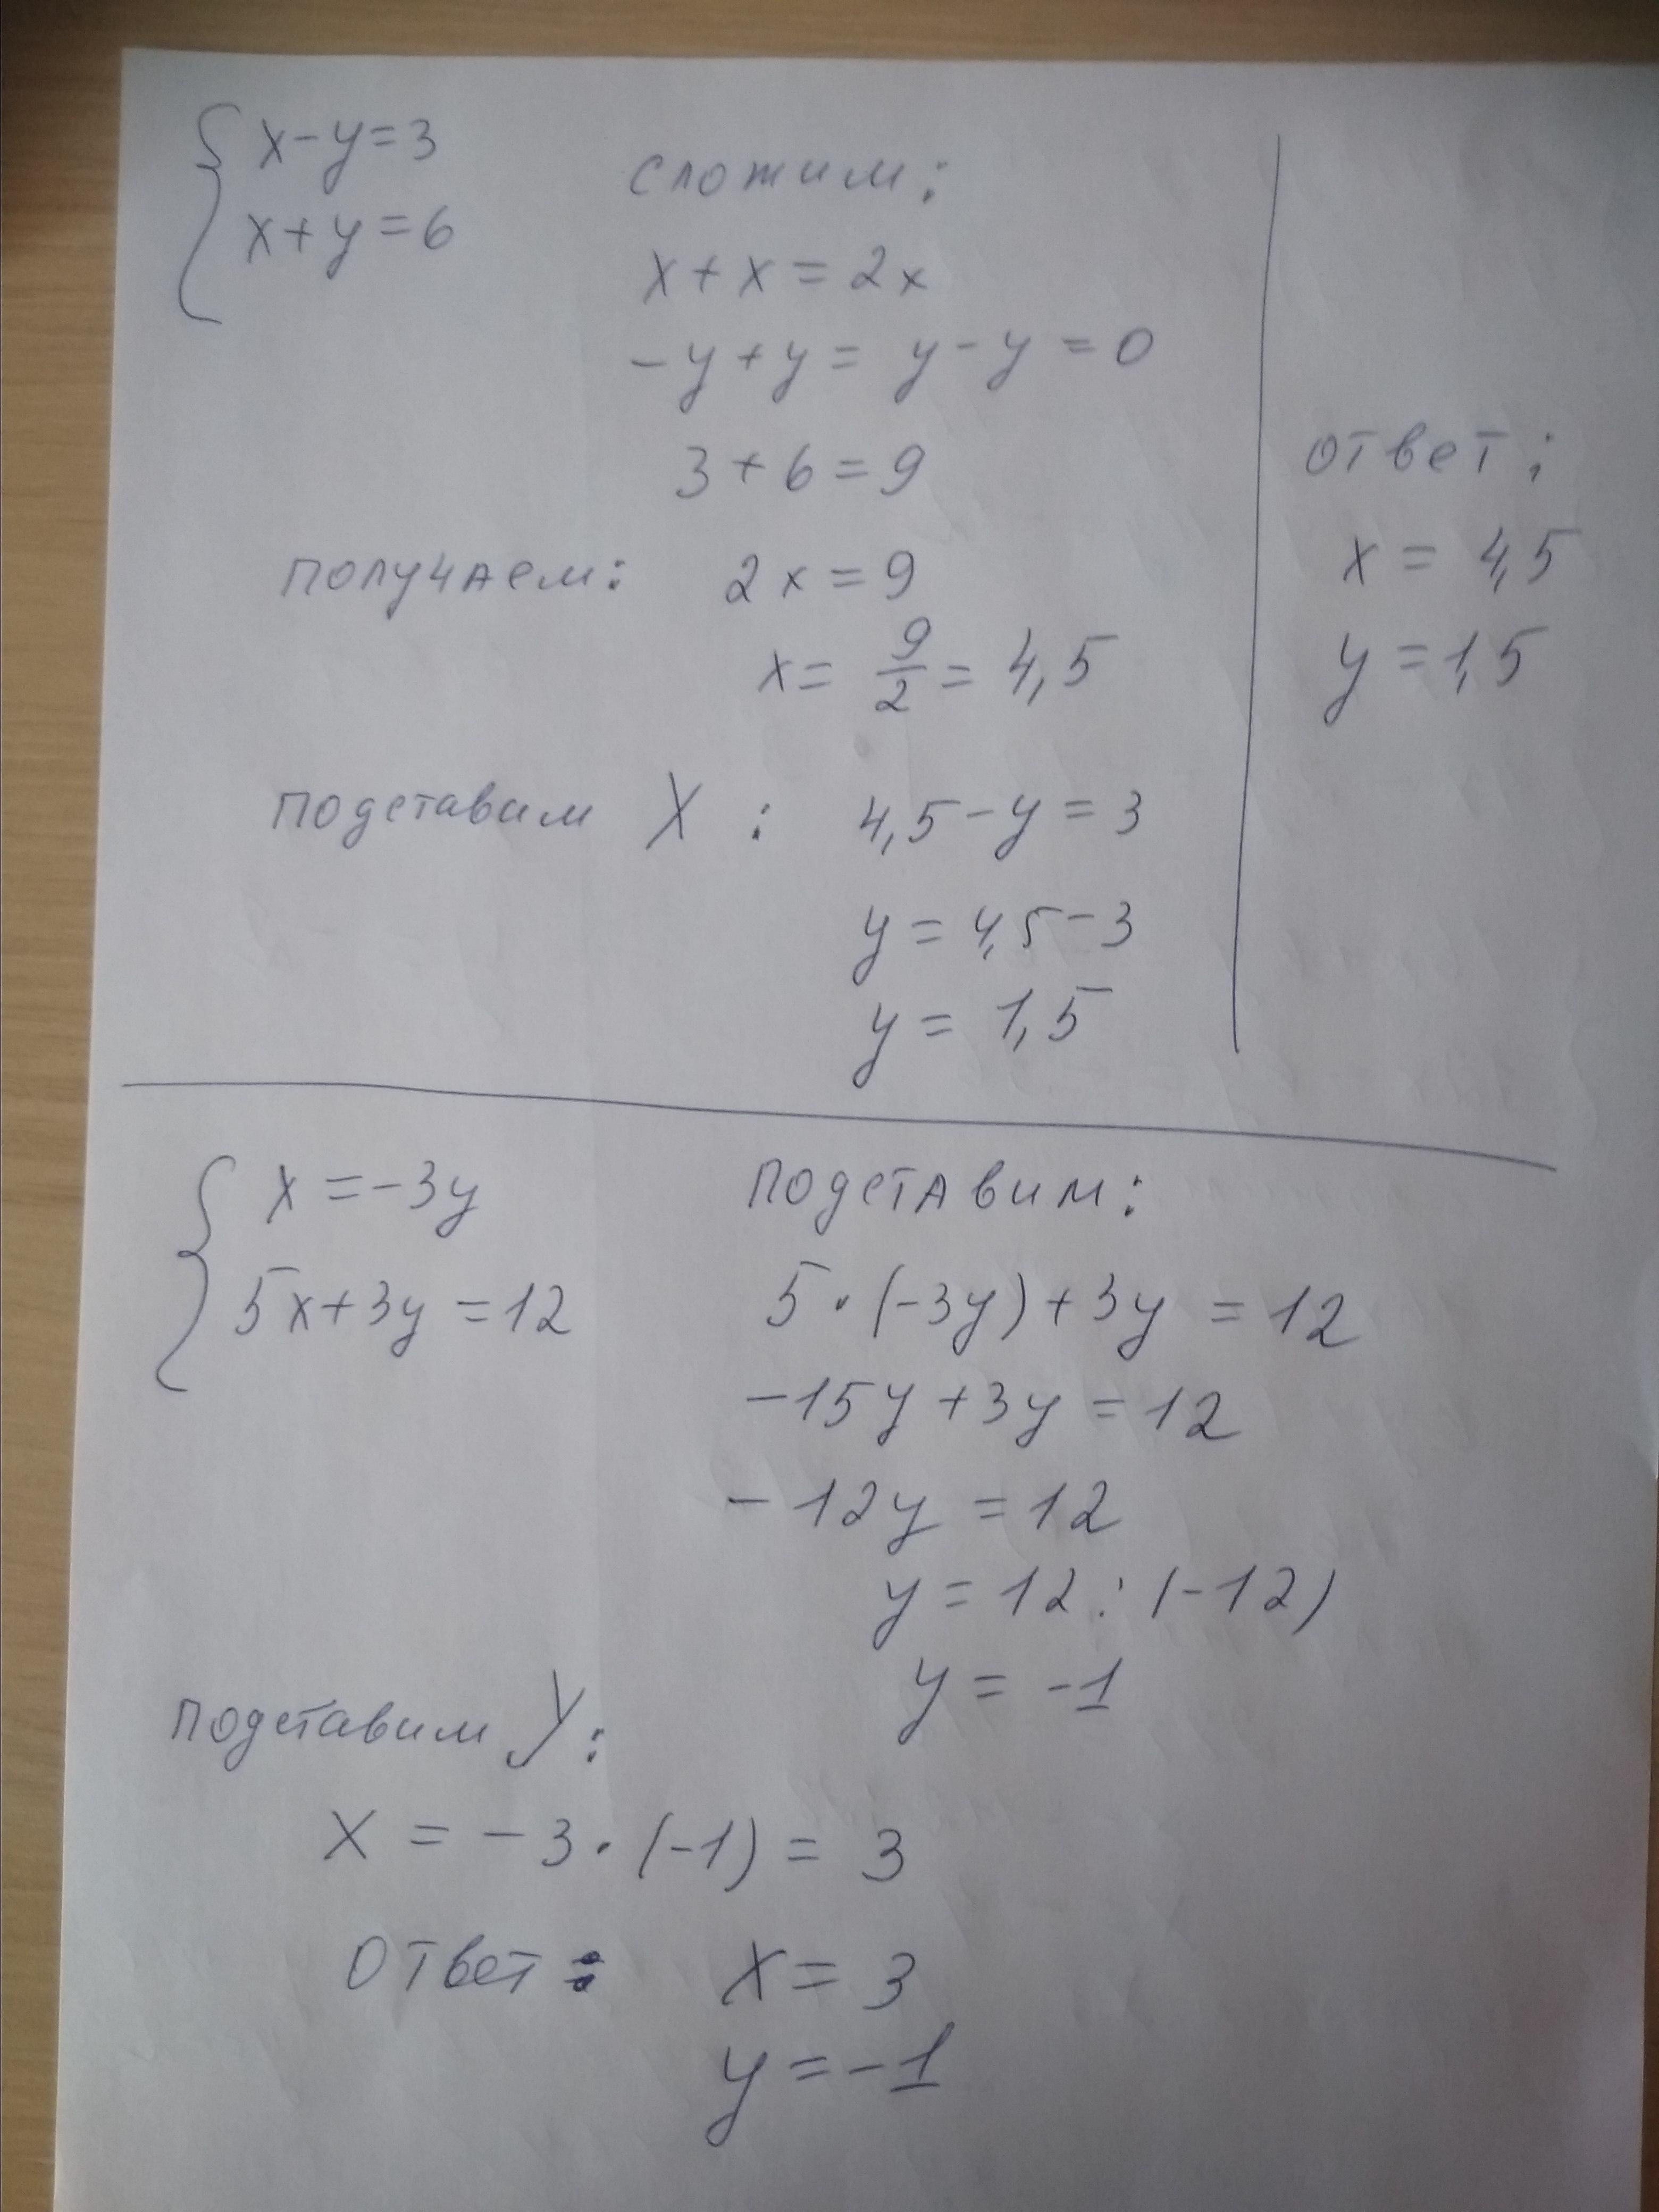 x-y=3
x+y=6
сложим:
x+x=2x
-y+y= y-y =0
3+6=9
получаем: 2x=9
x= 9/2 = 4,5
подставим X : 4,5-y=3
y=4,5-3
y= 1,5
ответ:
x= 4,5
y=1,5
x=-3y
5x+3y=12
подставим:
5·(-3y)+3y =12
-15y+3y=12
-12y=12
y=12:(-12)
y= -1
подставим У:
X = -3·(-1)= 3
Ответ: X=3
y=-1